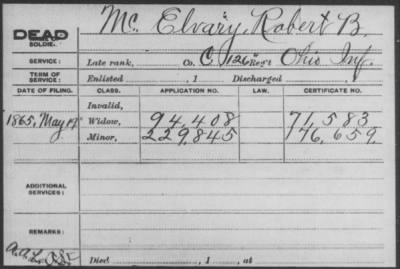 Mc Elvary, Robert B.
DEAD
SOLDIER.
SERVICE: Late rank, Co. C, 126" Reg't Ohio Inf.
TERM OF SERVICE: Enlisted , 1 Discharged , 1
DATE OF FILING. CLASS. APPLICATION NO. LAW. CERTIFICATE NO.
Invalid,
1865, May 19 Widow, 94,408 71,583
Minor, 229,845 76,659.
ADDITIONAL SERVICES:
REMARKS:
Died , 1 , at